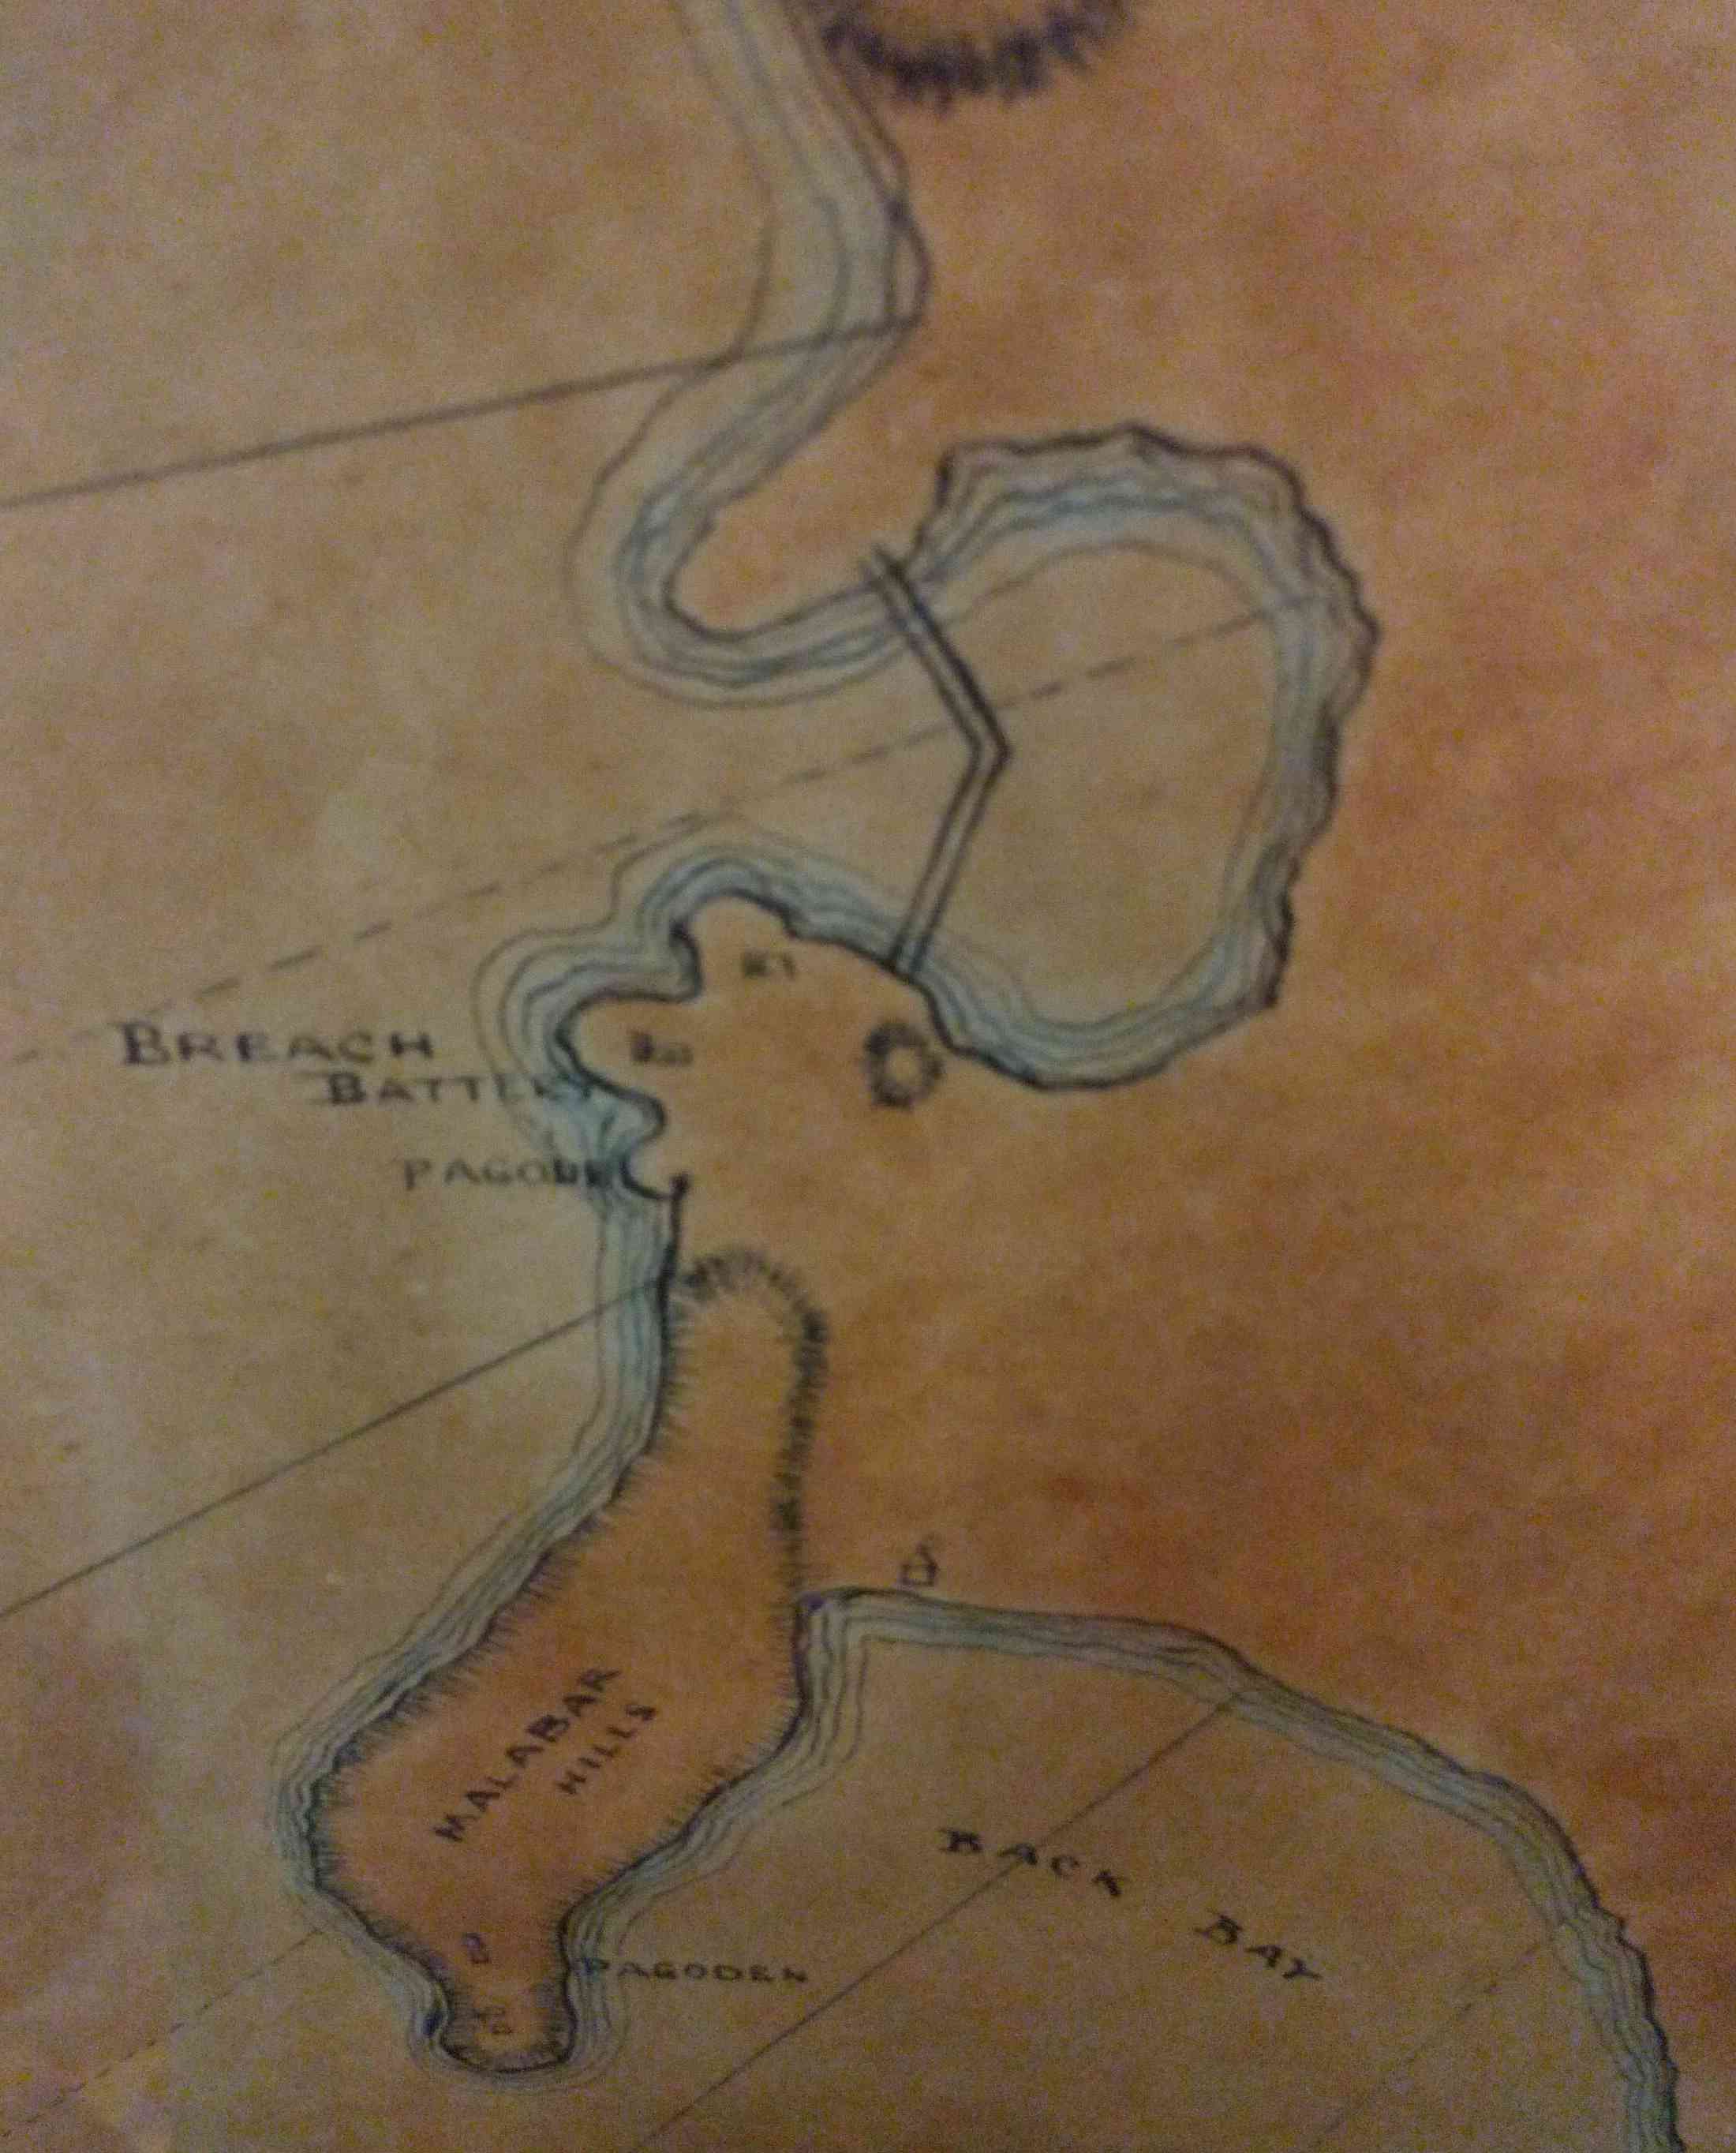 BREACH
BATTERY
PAGODE
MALABAR
HILLS
BACK BAY
PAGODEN